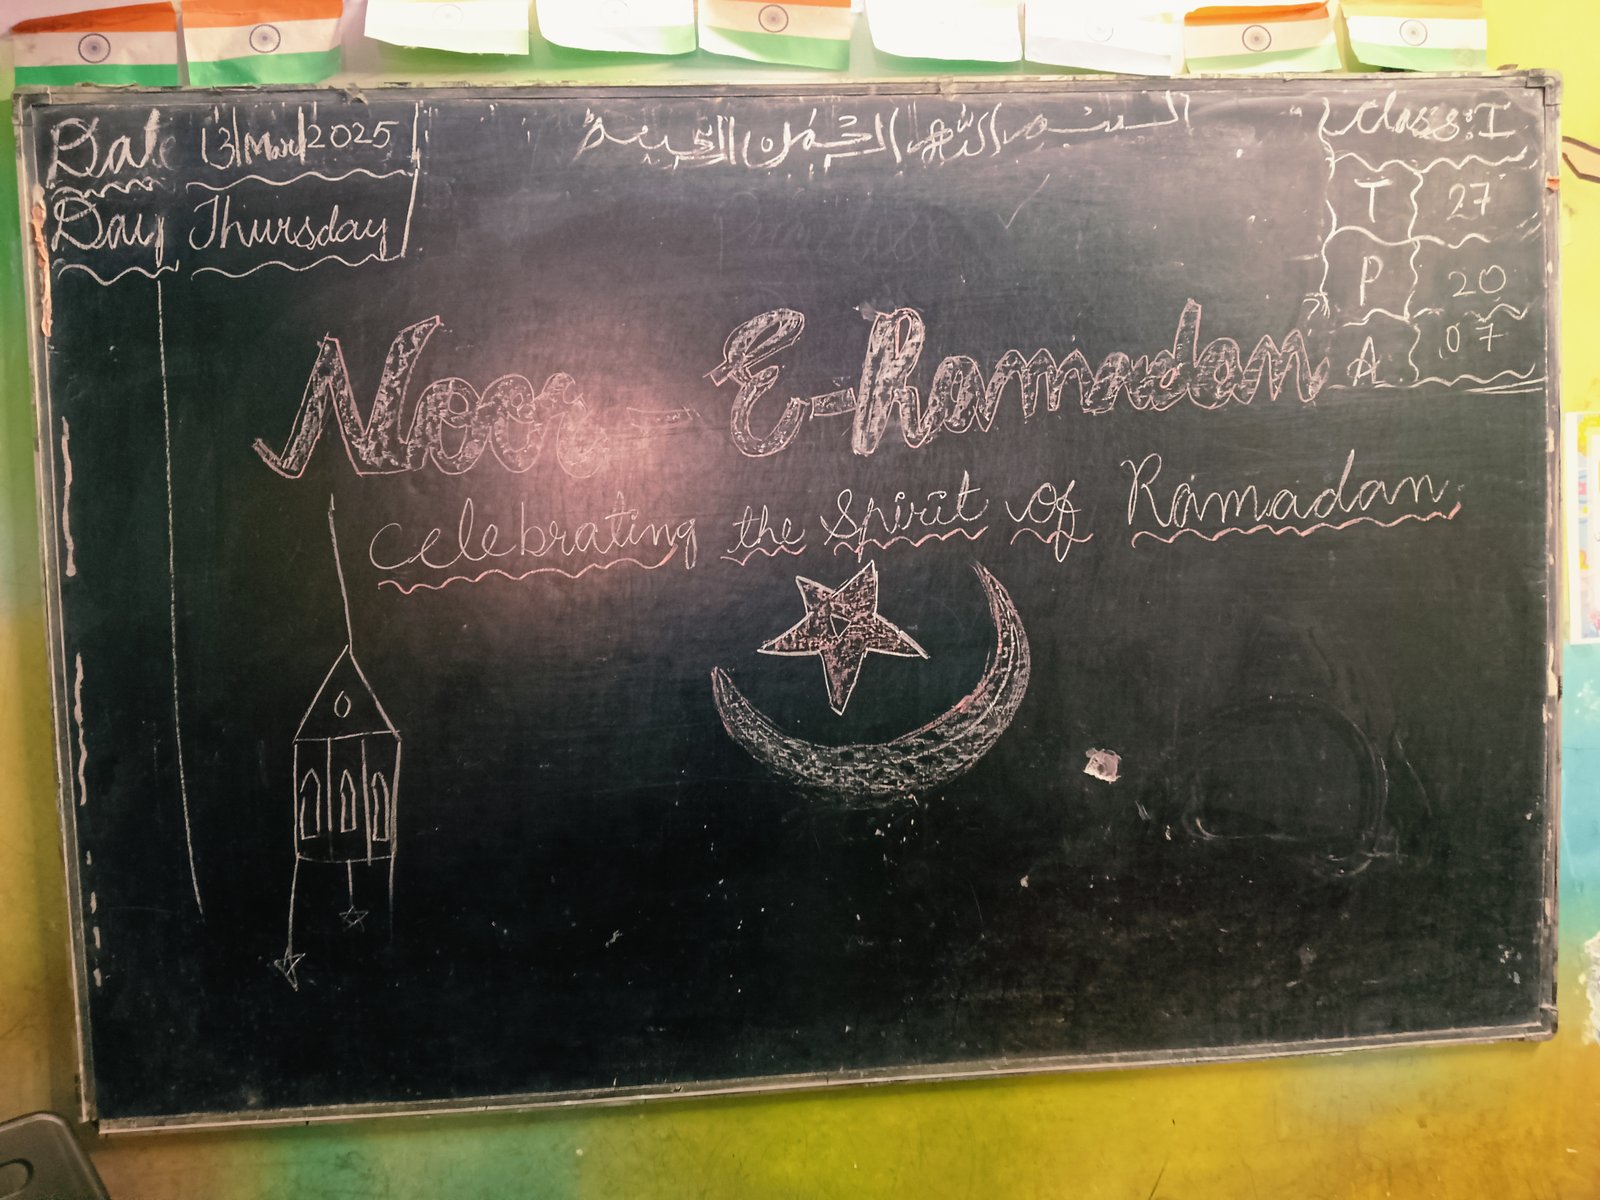 Date 13/Mar/2025
Day Thursday
بسم الله الرحمن الرحيم
Class: I
T 27
P 20
A 07
Noor-E-Ramadan
Celebrating the Spirit of Ramadan